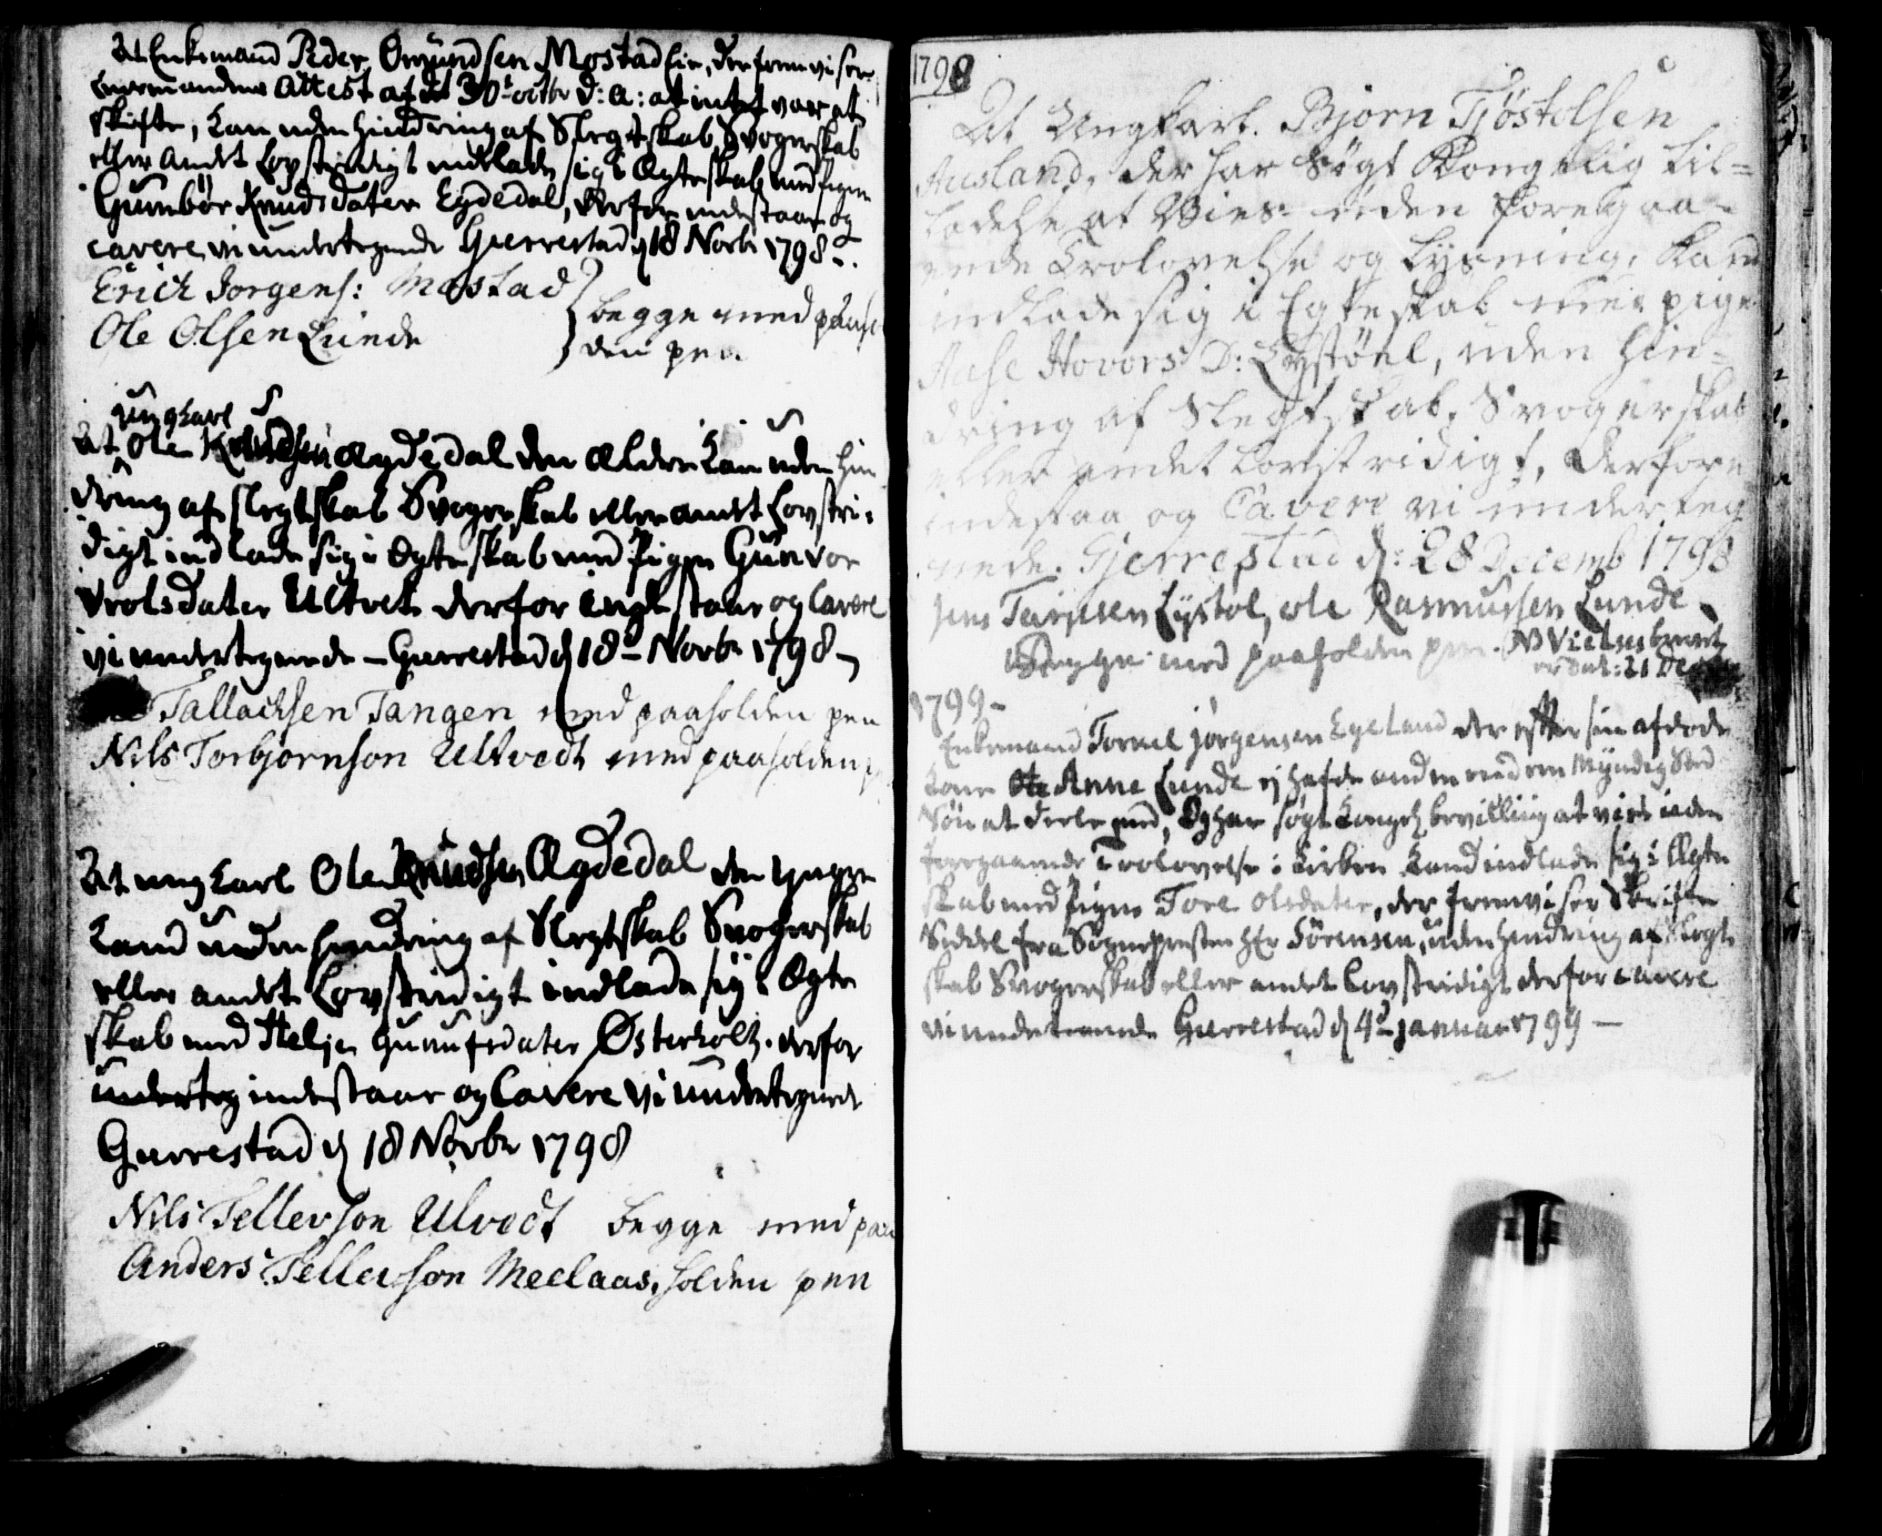 At Enkemand Peder Omundsen Mostad Eie, der fremviser
Lensmandens Attest af 30t octbr d: a: at intet var at
skifte, kan uden hindring af Slegtskab, Svogerskab
eller andet Lovstridigt indlade sig i Ægteskab med Pigen
Gunbør Knudsdater Egdedal, derfor indestaar og
cavere vi undertegnede Gierrestad d 18 Novbr 1798
Erich Jorgens: Mostad
Ole Olsen Lunde
begge med paahol
den pen
ung karl
At Ole Knudsen Ægdedal den Ældre kan uden hin
dring af slegtskab Svogerskab eller andet Lovstri:
digt indlade sig i Ægteskab med Pigen Gunvor
Vrolsdater Ultvet derfor indestaar og Cavere
vi undertegnede - Gierrestad d 18 - Novbr 1798
Tallachsen Tangen med paaholden pen
Nils Torbjornson Ultvedt med paaholden
At ung karl Ole Knudsen Ægdedal den yngre
kand uden hindring af Slegtskab Svogerskab
eller andet Lovstridigt indlade sig i Ægte
skab med Helje Gunufsdater Østerholt. derfor
underteg indestaar og Cavere vi undertegnede
Gierrestad d 18 Novbr 1798
Nils Tellevson Ulvedt begge med paa
Anders Tellefson Meelaas, holden pen
1798
At Ungkarl. Bjorn Tjøstelsen
Ausland, der har Søgt Kongelig til=
ladelse at Vies uden foregaa=
ende Trolovelse og Lysning, Kand
indlade sig i Egteskab med pige
Aase Hovors D: Lystöel, uden hin=
dring af Slegtskab, Svogerskab
eller andet Lovstridigt, derfore
indestaa og Cavere vi underteg
nede. Gjerrestad d: 28 Decemb 1798
Jens Terjesen Lystøl, ole Rasmussen Lunde
Begge med paaholden pen. NB Vielsesbrevet
er dat: 21 De
1799-
Enkemand Tormel jørgensen Egeland der efter sin afdøde
kone Anne Lunde ej hafde anden end en Myndig Sted
Søn at deele med, og har søgt Kongel bevilling at vies uden
foregaaende Trolovelse i Kirken kand indlade sig i Ægte
skab med Pigen Tore olsdater, der fremviser Skifte
Seddel fra Sognepresten Hr Sørensen, uden hindring af slegt
skab Svogerskab eller andet Lovstridigt derfor cavere
vi undertegnede Gierrestad d 4d januar 1799 -